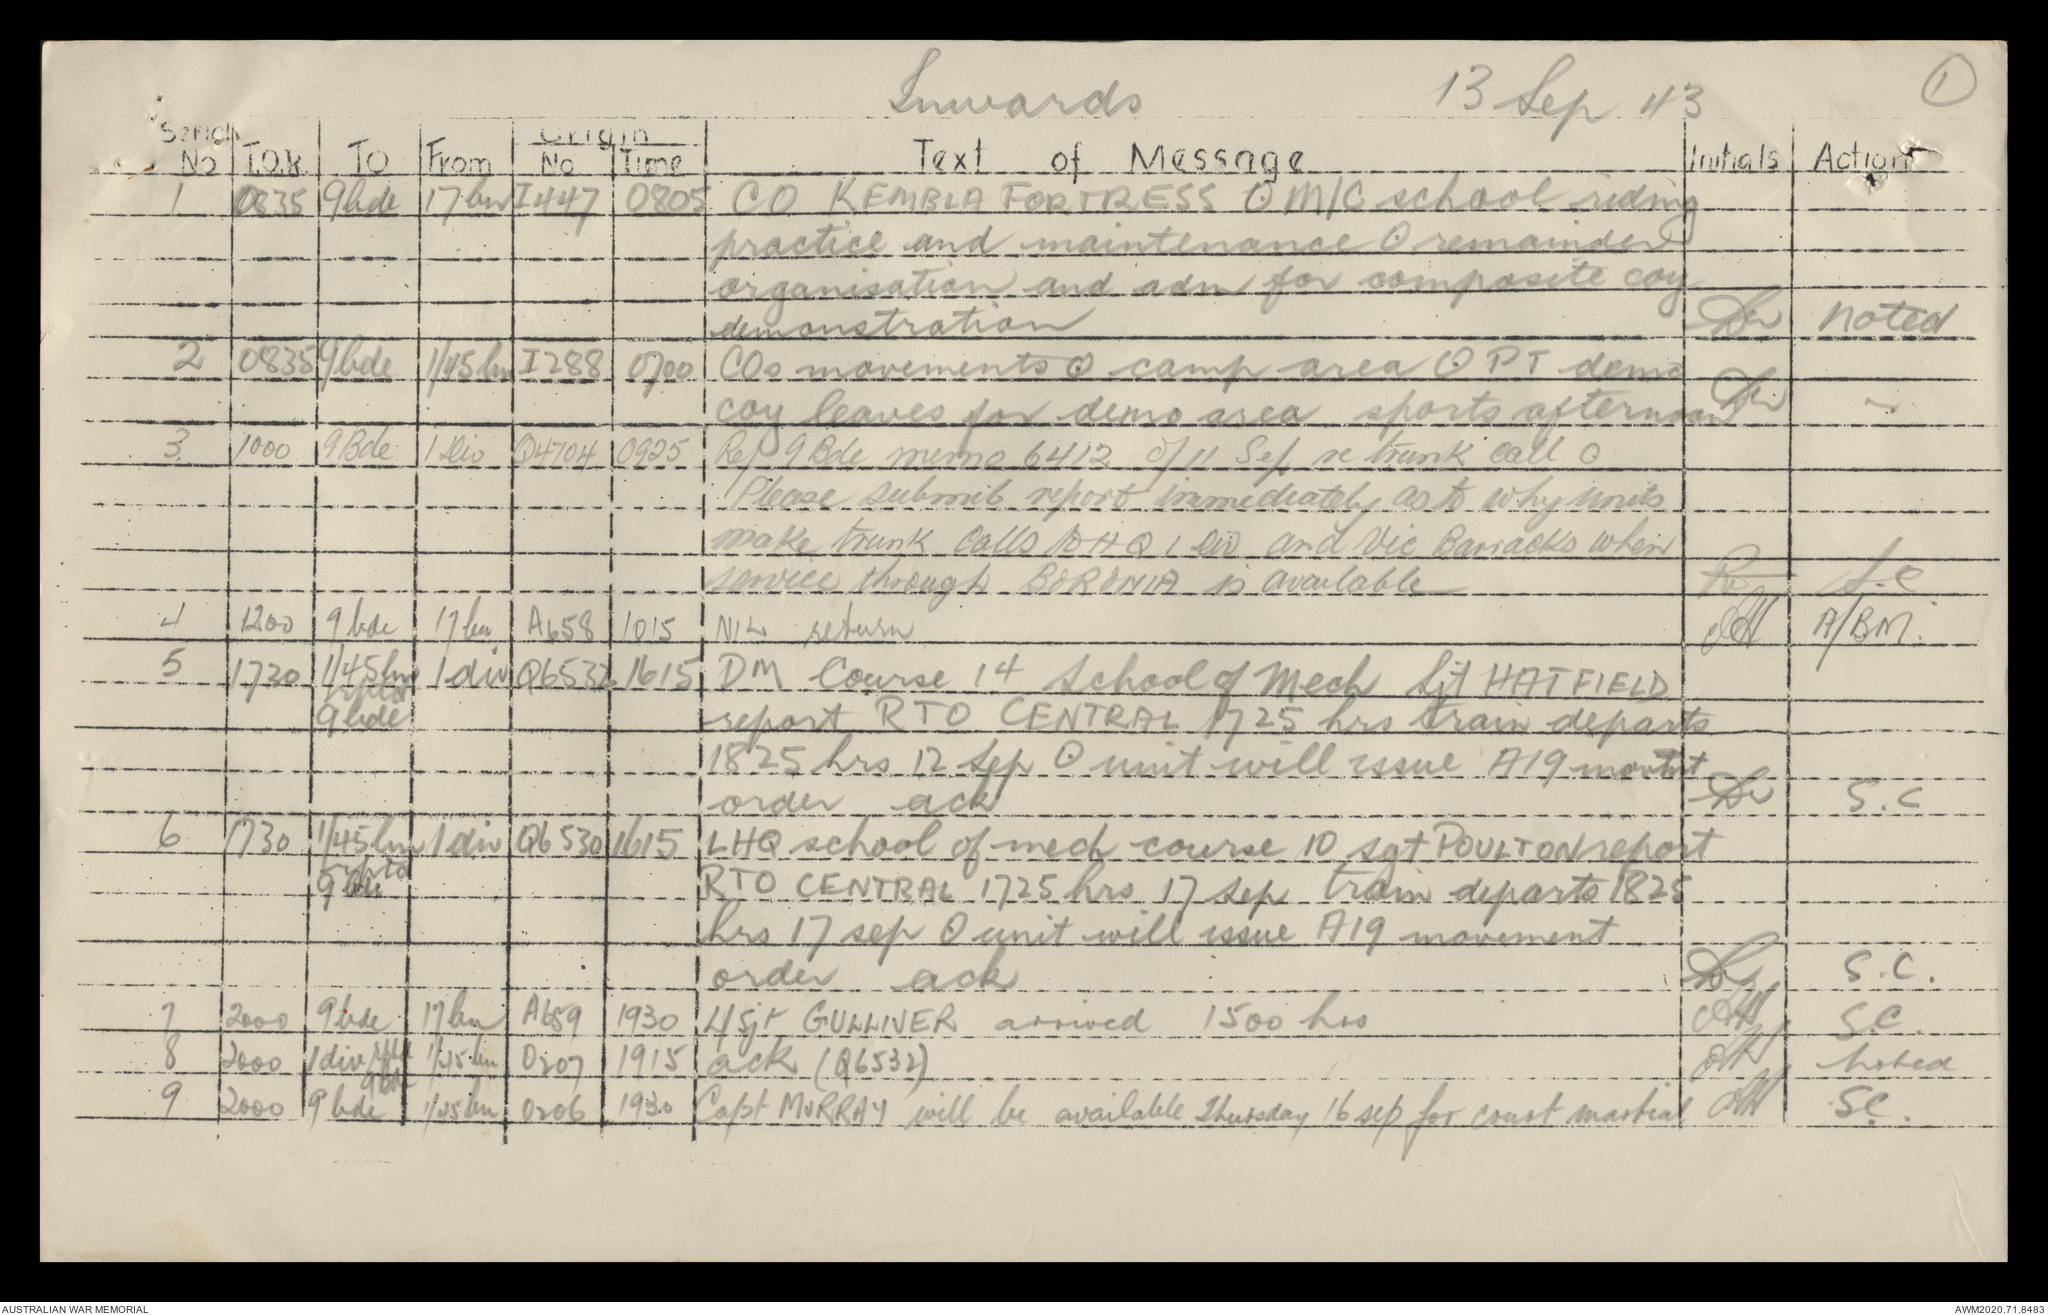 Inwards 13 Sep 43 1
Serial Origin
No T.O.R TO From No Time Text of Message Initials Action
1 0835 9 bde 17 bn I447 0805 CO KEMBLA FORTRESS O M/C school riding
practice and maintenance O remainder
organisation and adm for composite coy
demonstration noted
2 0835 9 bde 1/45 bn I288 0700 COs movements O camp area O PT demo
coy leaves for demo area sports afternoon
3 1000 9 Bde 1 Div Q4704 0925 Ref 9 Bde memo 6412 of 11 Sep re trunk call O
Please submit report immediately as to why units
make trunk calls to HQ 1 Div and Vic Barracks when
service through BORONIA is available S.C
4 1200 9 bde 17 bn A658 1015 NIL return A/BM.
5 1730 1/45 bn 1 div Q6532 1615 DM Course 14 School of Mech Sjt HATFIELD
rptd
9 bde report RTO CENTRAL 1725 hrs train departs
1825 hrs 12 Sep O unit will issue A19 movt
order ack S.C
6 1730 1/45 bn 1 div Q6530 1615 LHQ school of mech course 10 sgt POULTON report
rptd
9 bde RTO CENTRAL 1725 hrs 17 sep train departs 1825
hrs 17 sep O unit will issue A19 movement
order ack S.C.
7 2000 9 bde 17 bn A659 1930 L/Sjt GULLIVER arrived 1500 hrs S.C.
8 2000 1 div 1/45 bn O207 1915 ack (Q6532) Noted
9 bde
9 2000 9 bde 1/45 bn O206 1930 Capt MURRAY will be available Thursday 16 sep for court martial S.C.
AUSTRALIAN WAR MEMORIAL AWM2020.71.8483